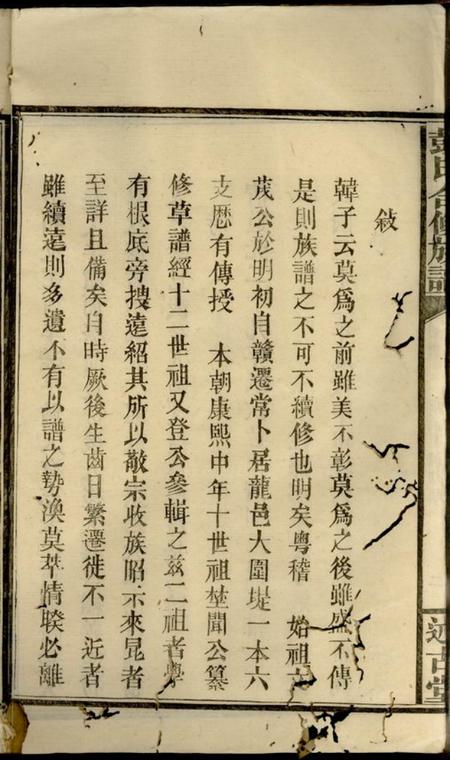 敍
韓子云莫爲之前雖美不彰莫爲之後雖盛不傳
是則族譜之不可不續修也明矣粵稽 始祖
茂公於明初自贛遷常卜居龍邑大圍堤一本六
支歷有傳授 本朝康熙中年十世祖 聞公纂
修草譜經十二世祖又登公參輯之茲二祖者學
有根底旁搜遠紹其所以敬宗收族昭示來昆者
至詳且備矣自時厥後生齒日繁遷徙不一近者
雖續遠則多遺不有以譜之勢渙莫萃情暌必離
彭氏合修族譜
述古堂